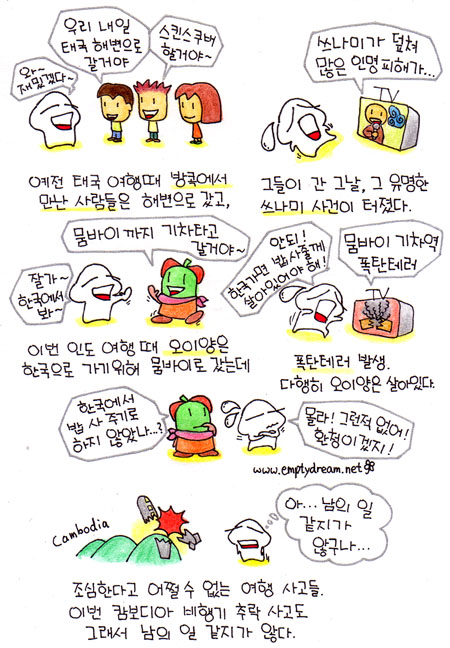 와~
재밌겠다~
우리 내일
태국 해변으로
갈거야
스킨스쿠버
할거야~
쓰나미가 덮쳐
많은 인명피해가...
TV
예전 태국 여행때 방콕에서
만난 사람들은 해변으로 갔고,
그들이 간 그날, 그 유명한
쓰나미 사건이 터졌다.
잘가~
한국에서
봐~
뭄바이까지 기차타고
갈거야~
안돼!
한국가면 밥 사줄께
살아있어야 해!
뭄바이 기차역
폭탄테러
TV
이번 인도 여행 때 오이양은
한국으로 가기위해 뭄바이로 갔는데
폭탄테러 발생.
다행히 오이양은 살아있다.
한국에서
밥 사 주기로
하지 않았나...?
몰라! 그런적 없어!
환청이겠지!
www.emptydream.net
Cambodia
아... 남의 일
같지가
않구나...
조심한다고 어쩔 수 없는 여행 사고들.
이번 캄보디아 비행기 추락 사고도
그래서 남의 일 같지가 않다.